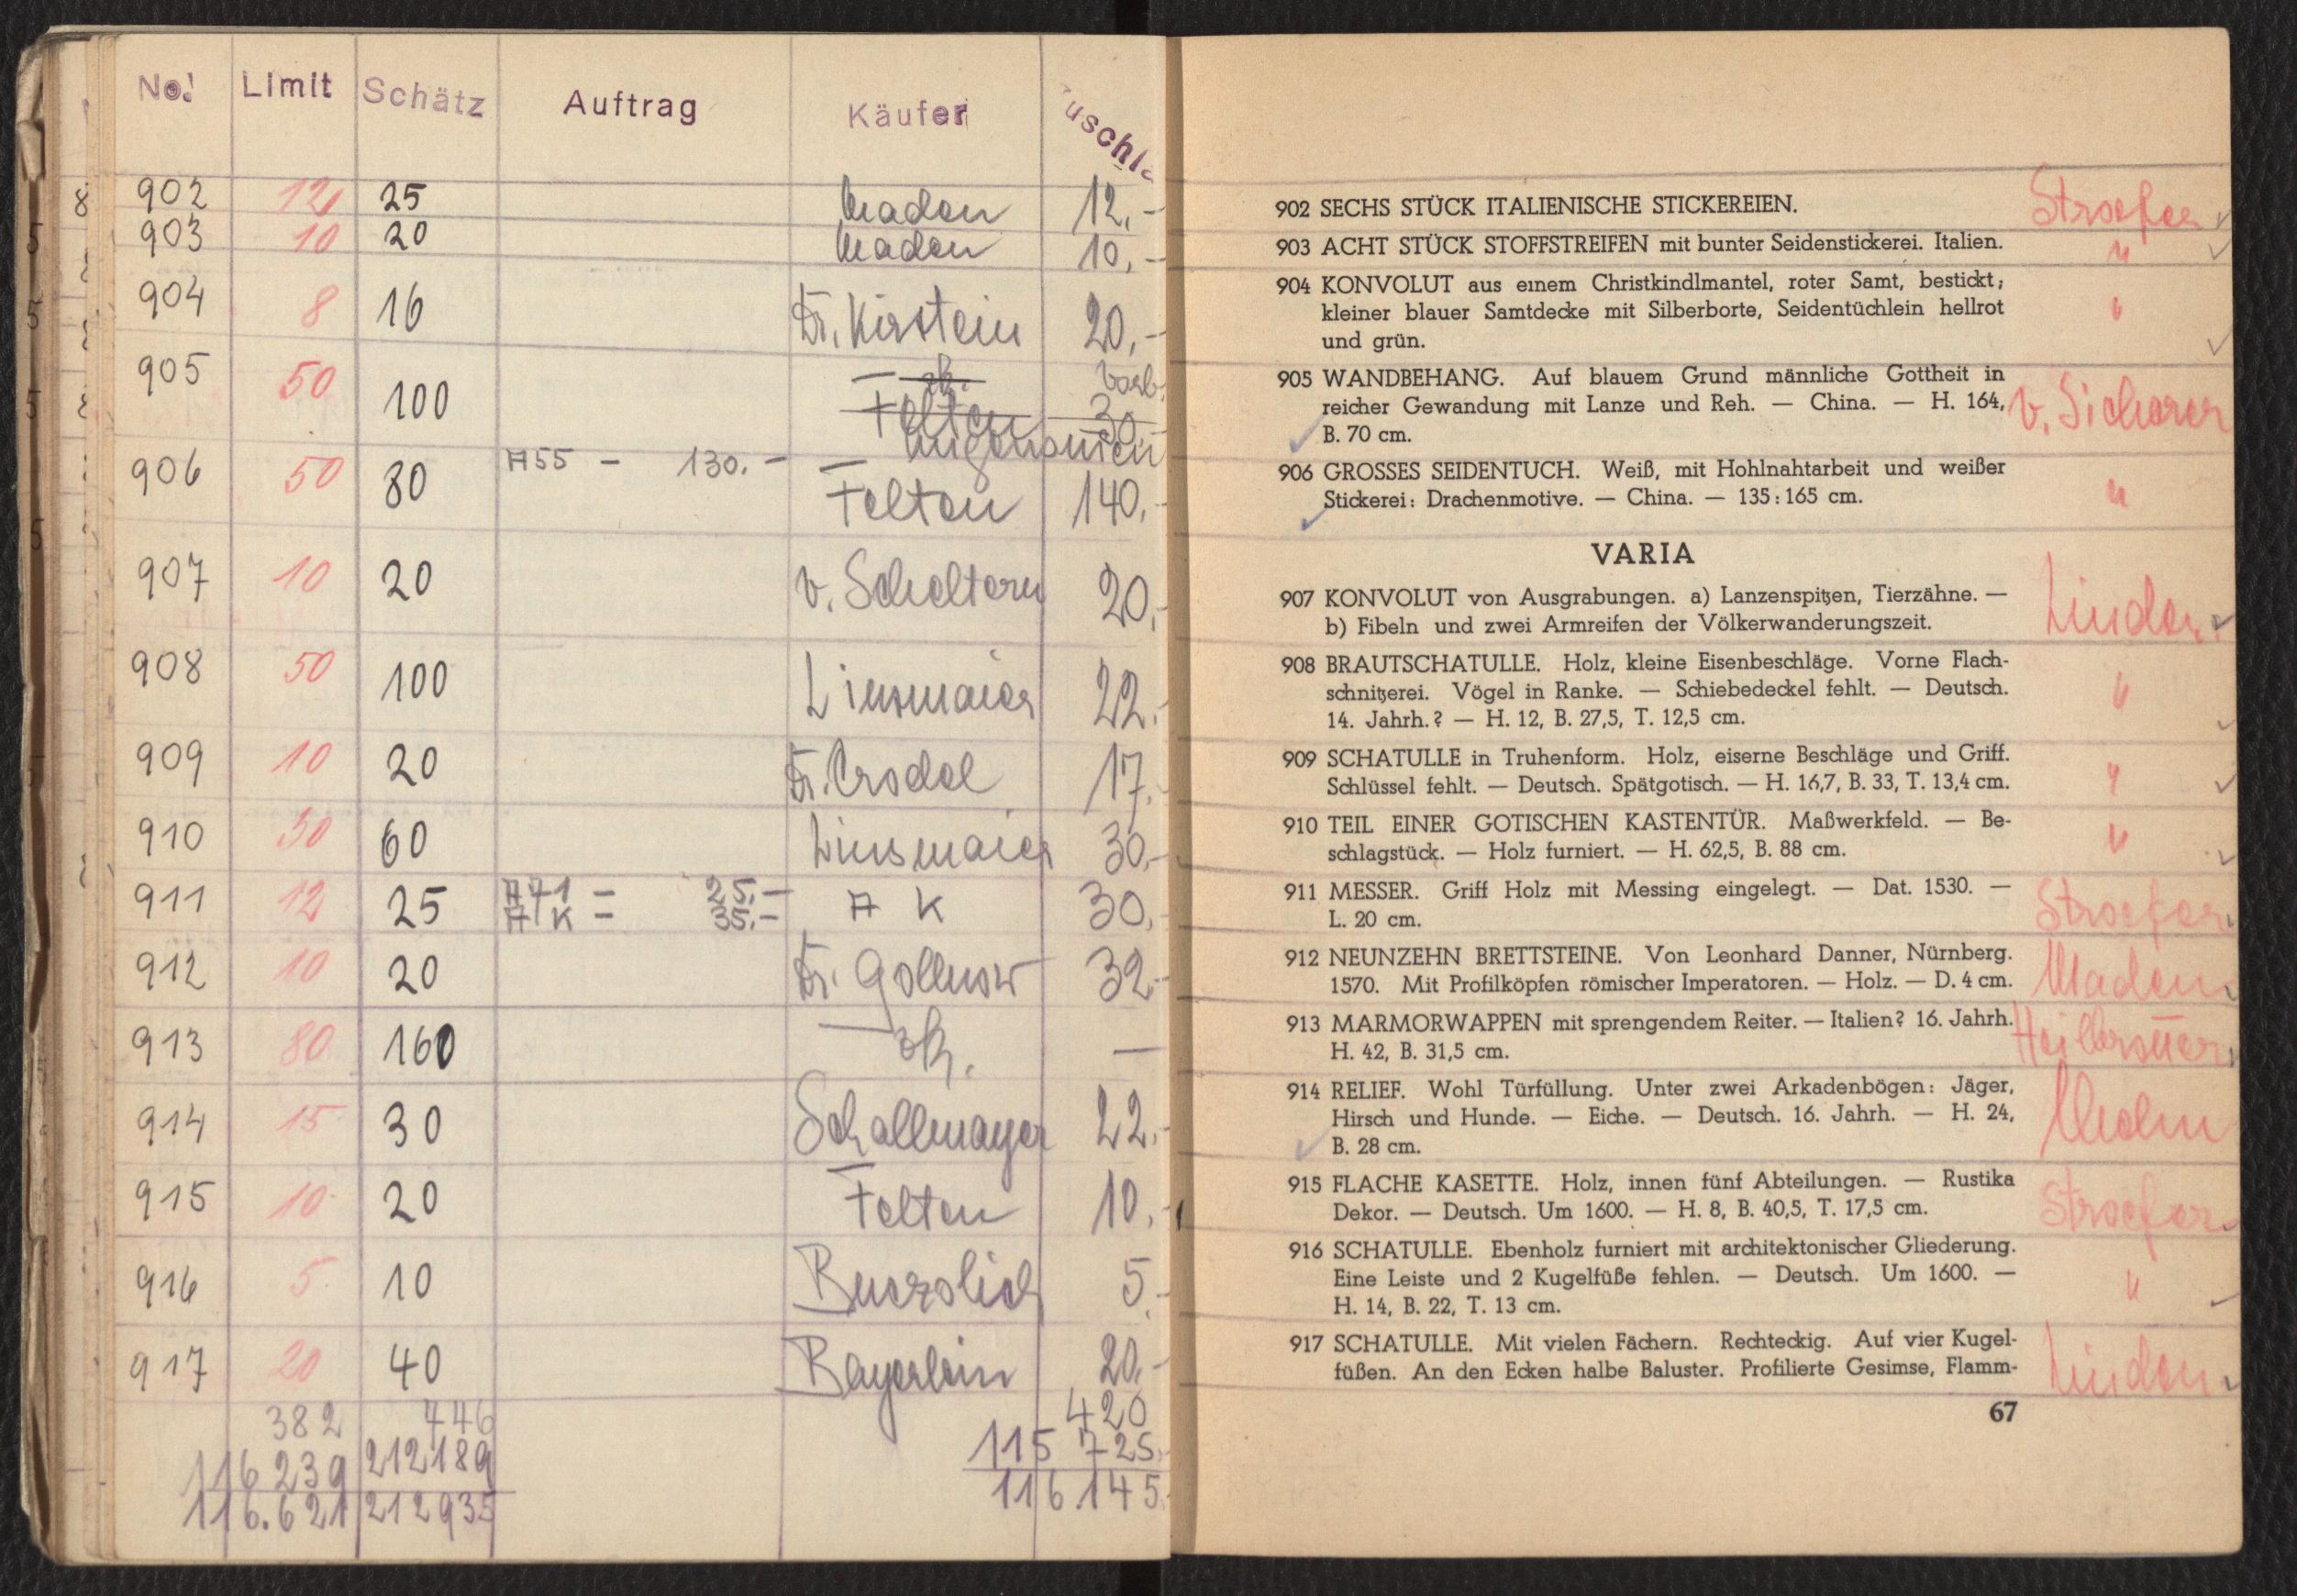 No. Limit Schätz Auftrag Käufer uschla
902 12 25 Maden 12.-
903 10 20 Maden 10.-
904 8 16 Dr. Kirstein 20.-
905 50 100 Felten 30.
906 50 80 A55 - 130.- Felten 140.-
907 10 20 20.-
908 50 100 Linsmaier 22.-
909 10 20 Dr. Crodel 17.-
910 30 60 Linsmaier 30.-
911 12 25 A71 - 25.- A K 30.-
A K - 35.-
912 10 20 Dr. Gollnow 32.-
913 80 160 zk. —
914 15 30 Schallmayer 22.-
915 10 20 Felten 10.-
916 5 10 5.-
917 20 40 Bayerlein 20.-
382 746 420
116.239 212189 115 725.
116.621 212935 116 145.
902 SECHS STÜCK ITALIENISCHE STICKEREIEN. Stroefer
903 ACHT STÜCK STOFFSTREIFEN mit bunter Seidenstickerei. Italien. "
904 KONVOLUT aus einem Christkindlmantel, roter Samt, bestickt; "
kleiner blauer Samtdecke mit Silberborte, Seidentüchlein hellrot
und grün.
905 WANDBEHANG. Auf blauem Grund männliche Gottheit in
reicher Gewandung mit Lanze und Reh. — China. — H. 164, v. Sicherer
B. 70 cm.
906 GROSSES SEIDENTUCH. Weiß, mit Hohlnahtarbeit und weißer
Stickerei: Drachenmotive. — China. — 135:165 cm. "
VARIA
907 KONVOLUT von Ausgrabungen. a) Lanzenspitzen, Tierzähne. — Linden
b) Fibeln und zwei Armreifen der Völkerwanderungszeit.
908 BRAUTSCHATULLE. Holz, kleine Eisenbeschläge. Vorne Flach-
schnitzerei. Vögel in Ranke. — Schiebedeckel fehlt. — Deutsch. "
14. Jahrh.? — H. 12, B. 27,5, T. 12,5 cm.
909 SCHATULLE in Truhenform. Holz, eiserne Beschläge und Griff.
Schlüssel fehlt. — Deutsch. Spätgotisch. — H. 16,7, B. 33, T. 13,4 cm. "
910 TEIL EINER GOTISCHEN KASTENTÜR. Maßwerkfeld. — Be-
schlagstück. — Holz furniert. — H. 62,5, B. 88 cm. "
911 MESSER. Griff Holz mit Messing eingelegt. — Dat. 1530. —
L. 20 cm. Stroefer
912 NEUNZEHN BRETTSTEINE. Von Leonhard Danner, Nürnberg.
1570. Mit Profilköpfen römischer Imperatoren. — Holz. — D. 4 cm. Maden
913 MARMORWAPPEN mit sprengendem Reiter. — Italien? 16. Jahrh.
H. 42, B. 31,5 cm. Heilbronner
914 RELIEF. Wohl Türfüllung. Unter zwei Arkadenbögen: Jäger,
Hirsch und Hunde. — Eiche. — Deutsch. 16. Jahrh. — H. 24,
B. 28 cm.
915 FLACHE KASETTE. Holz, innen fünf Abteilungen. — Rustika
Dekor. — Deutsch. Um 1600. — H. 8, B. 40,5, T. 17,5 cm. Stroefer
916 SCHATULLE. Ebenholz furniert mit architektonischer Gliederung.
Eine Leiste und 2 Kugelfüße fehlen. — Deutsch. Um 1600. — "
H. 14, B. 22, T. 13 cm.
917 SCHATULLE. Mit vielen Fächern. Rechteckig. Auf vier Kugel-
füßen. An den Ecken halbe Baluster. Profilierte Gesimse, Flamm- Linden
67